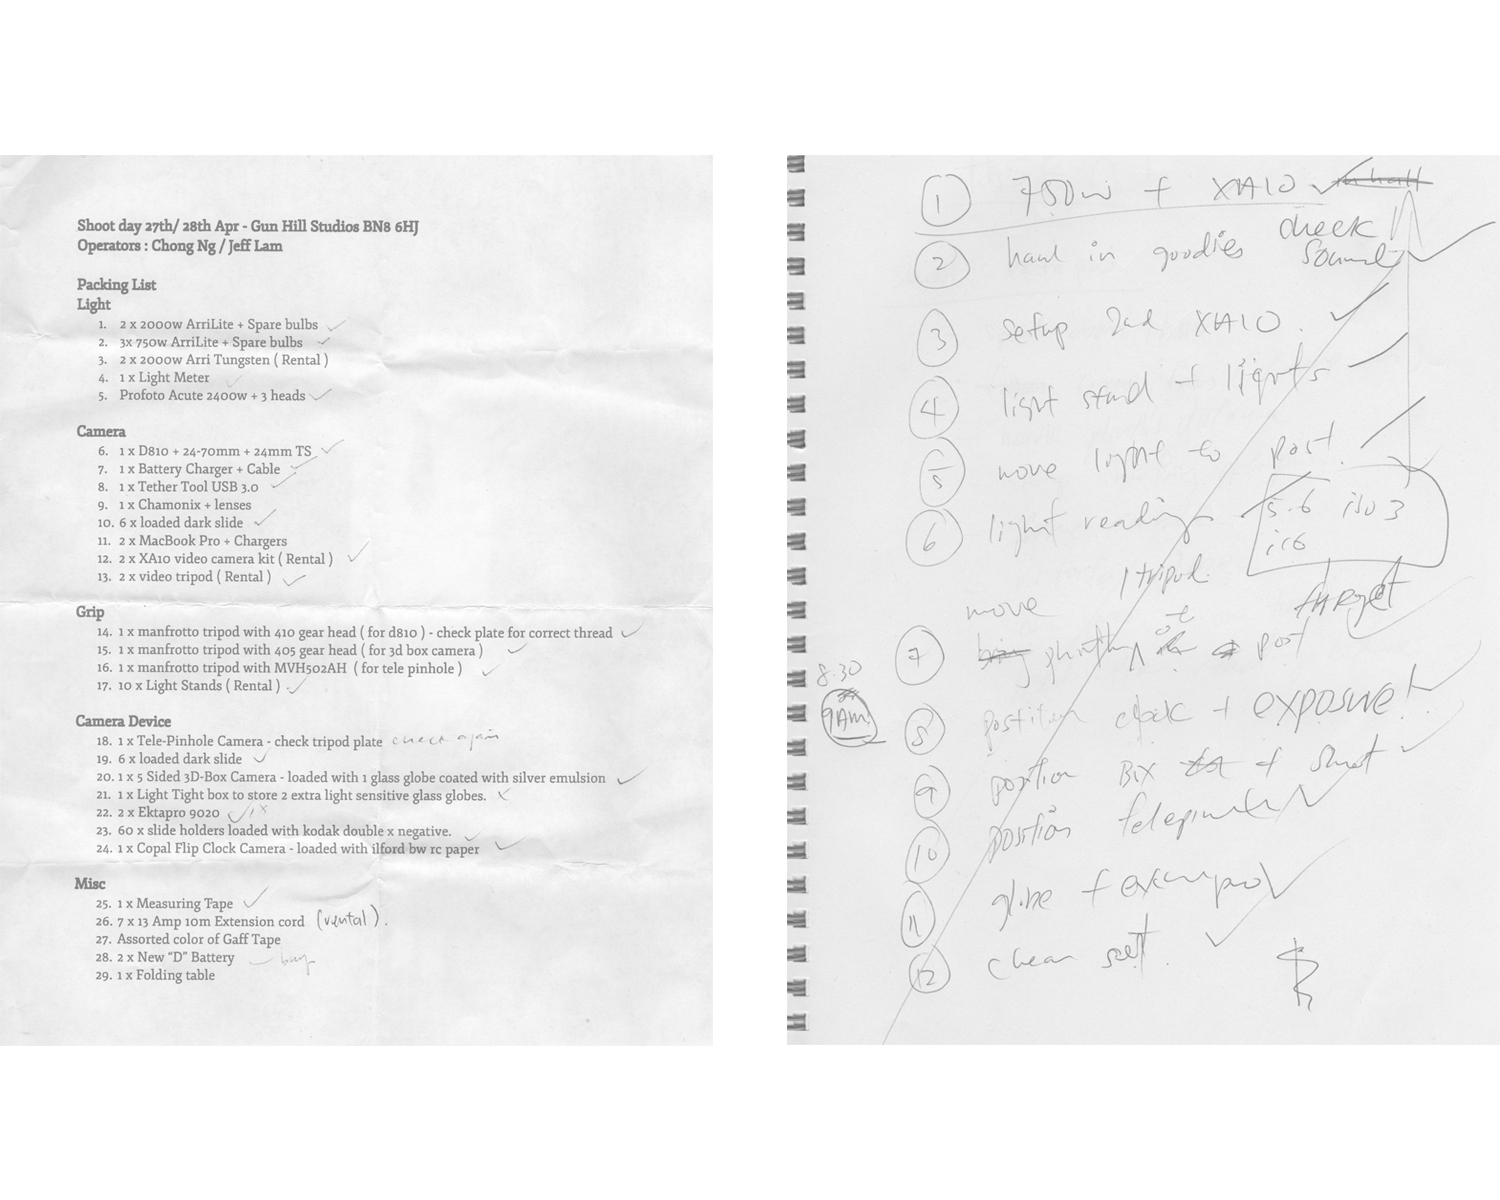 Shoot day 27th/ 28th Apr - Gun Hill Studios BN8 6HJ
Operators : Chong Ng / Jeff Lam
Packing List
Light
1. 2 x 2000w ArriLite + Spare bulbs
2. 3x 750w ArriLite + Spare bulbs
3. 2 x 2000w Arri Tungsten ( Rental )
4. 1 x Light Meter
5. Profoto Acute 2400w + 3 heads
Camera
6. 1 x D810 + 24-70mm + 24mm TS
7. 1 x Battery Charger + Cable
8. 1 x Tether Tool USB 3.0
9. 1 x Chamonix + lenses
10. 6 x loaded dark slide
11. 2 x MacBook Pro + Chargers
12. 2 x XA10 video camera kit ( Rental )
13. 2 x video tripod ( Rental )
Grip
14. 1 x manfrotto tripod with 410 gear head ( for d810 ) - check plate for correct thread
15. 1 x manfrotto tripod with 405 gear head ( for 3d box camera )
16. 1 x manfrotto tripod with MVH502AH ( for tele pinhole )
17. 10 x Light Stands ( Rental )
Camera Device
18. 1 x Tele-Pinhole Camera - check tripod plate check again
19. 6 x loaded dark slide
20. 1 x 5 Sided 3D-Box Camera - loaded with 1 glass globe coated with silver emulsion
21. 1 x Light Tight box to store 2 extra light sensitive glass globes.
22. 2 x Ektapro 9020
23. 60 x slide holders loaded with kodak double x negative.
24. 1 x Copal Flip Clock Camera - loaded with ilford bw rc paper
Misc
25. 1 x Measuring Tape
26. 7 x 13 Amp 10m Extension cord (rental).
27. Assorted color of Gaff Tape
28. 2 x New "D" Battery buy
29. 1 x Folding table
1 750w + XA10
check
2 haul in goodies sound
3 setup 2nd XA10.
4 light stand + lights
5 move light to post.
6 light reading 5.6 iso 3
1 tripod.
move target
7 post
8.30
9AM.
8 position clock + exposure!
9 position Box + shoot
10 position telepinhole
11 globe +
12 clean set.